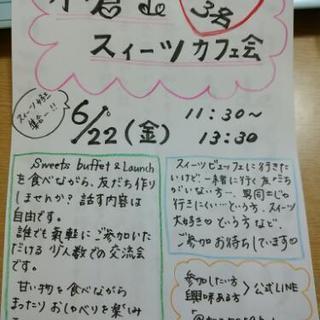 小倉 de
3名
スィーツ カフェ会
スィーツ好き
集合ー!!
6/22(金)
11:30〜
13:30
Sweets buffet & Launch
を食べながら、友だち作り
しませんか? 話す内容は
自由です。
誰でも気軽に ご参加いた
だける 少人数での交流会
です。
甘い物を食べながら
まったり おしゃべりを楽しみ
スィーツビュッフェに行きた
いけど、一緒に行く友だち
がいない方…、男同士じゃ
行きにくい…という方、スィーツ
大好き♡という方など、
ご参加お待ちしています♡
参加したい方
興味ある方
公式LINE